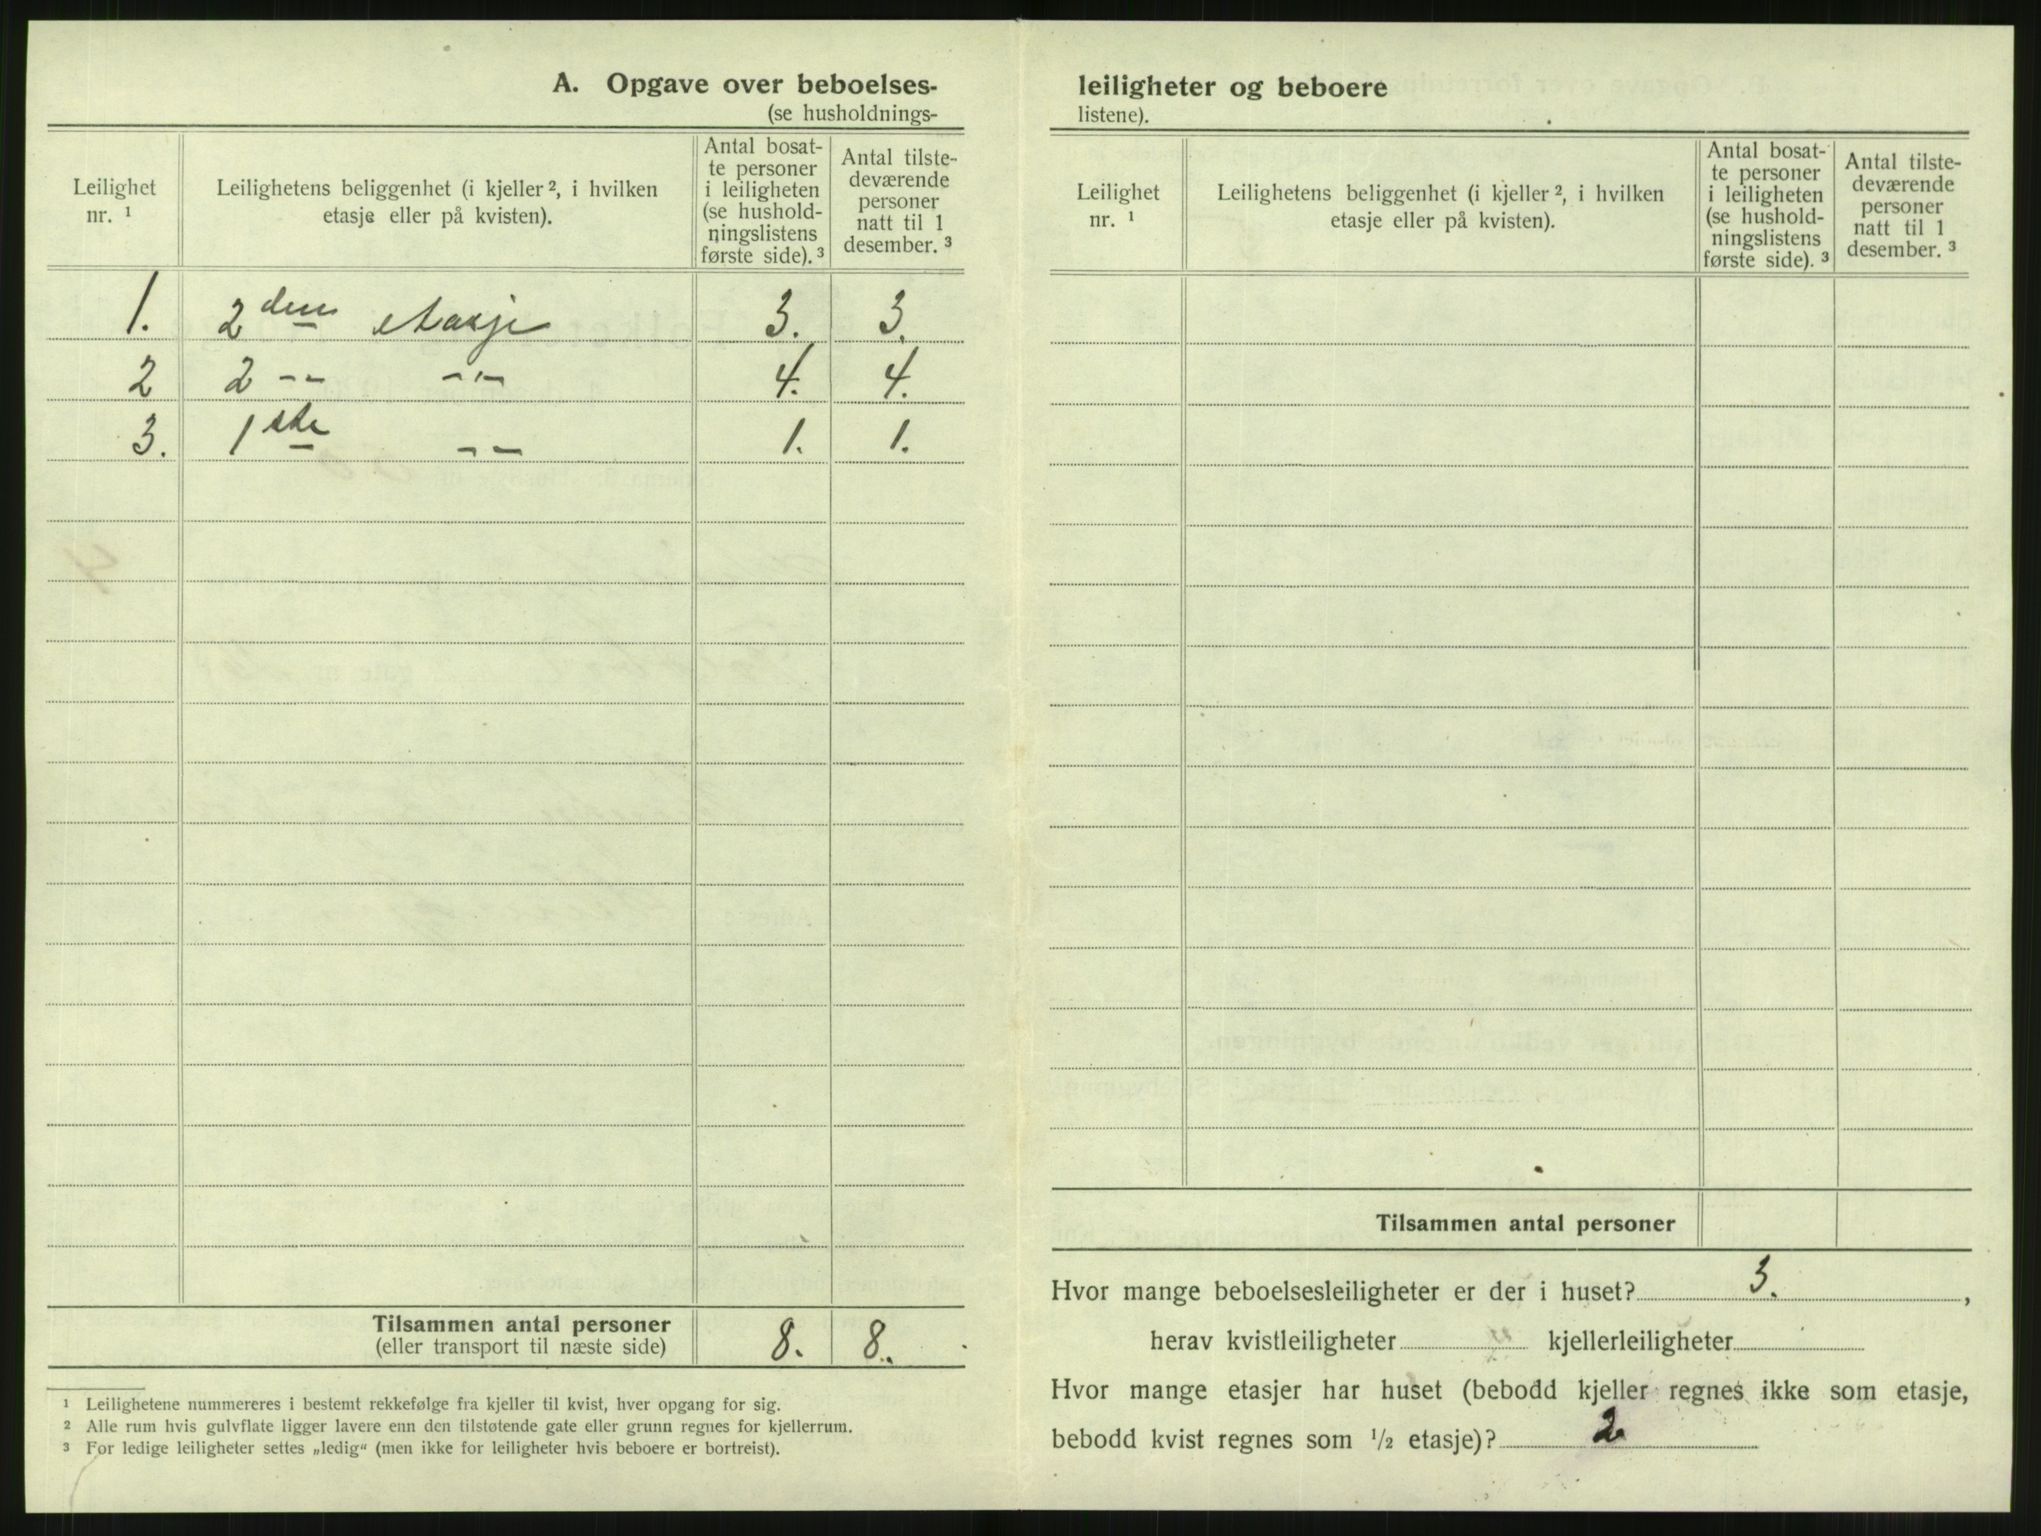 A. Opgave over beboelses-
(se husholdnings-
Leilighet nr. ¹
Leilighetens beliggenhet (i kjeller ², i hvilken etasje eller på kvisten).
Antal bosat-
te personer
i leiligheten
(se hushold-
ningslistens
første side). ³
Antal tilste-
deværende
personer
natt til 1
desember. ³
1. 2den etasje 3. 3.
2 2 -- -"- 4. 4.
3. 1ste -- 1. 1.
Tilsammen antal personer 8. 8.
(eller transport til næste side)
¹ Leilighetene nummereres i bestemt rekkefølge fra kjeller til kvist, hver opgang for sig.
² Alle rum hvis gulvflate ligger lavere enn den tilstøtende gate eller grunn regnes for kjellerrum.
³ For ledige leiligheter settes „ledig“ (men ikke for leiligheter hvis beboere er bortreist).
leiligheter og beboere
listene).
Leilighet nr. ¹
Leilighetens beliggenhet (i kjeller ², i hvilken etasje eller på kvisten).
Antal bosat-
te personer
i leiligheten
(se hushold-
ningslistens
første side). ³
Antal tilste-
deværende
personer
natt til 1
desember. ³
Tilsammen antal personer
Hvor mange beboelsesleiligheter er der i huset? 3. ,
herav kvistleiligheter kjellerleiligheter
Hvor mange etasjer har huset (bebodd kjeller regnes ikke som etasje,
bebodd kvist regnes som ½ etasje)? 2